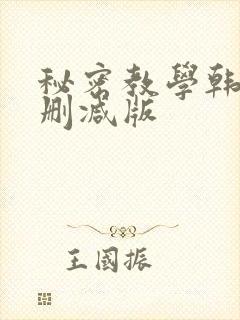 秘密教學韩
删減版
王國振